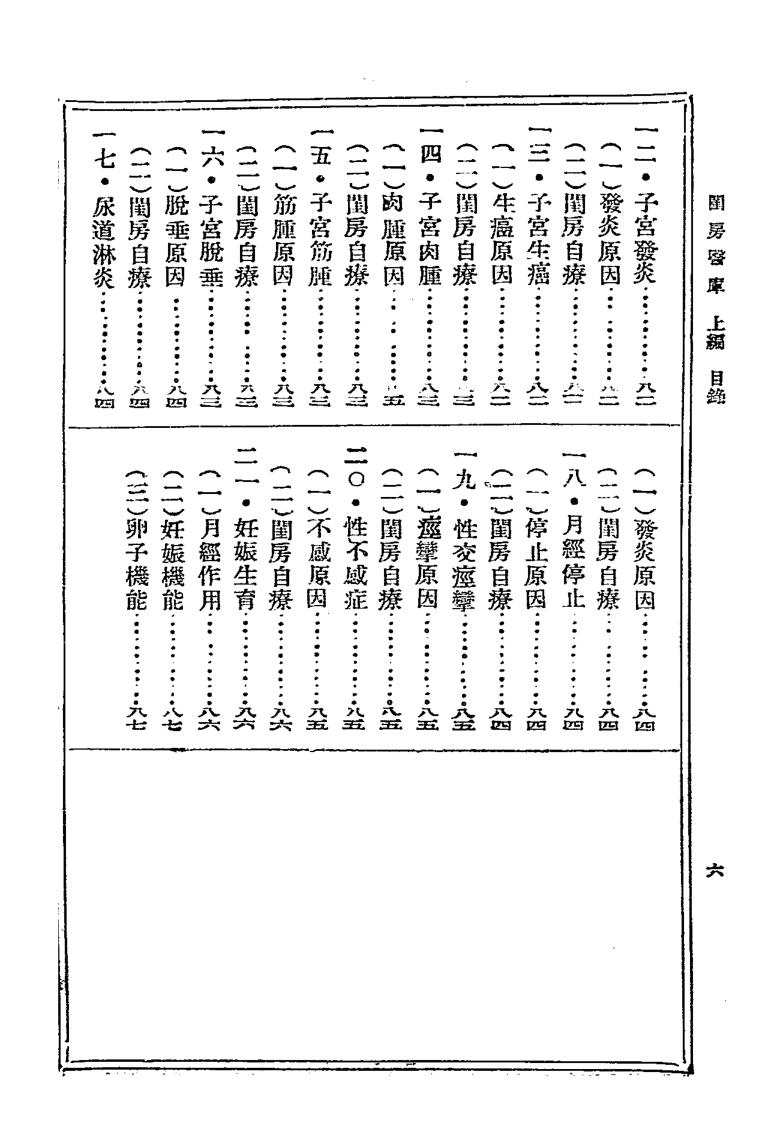 閨房醫庫 上編 目錄
六
一二・子宮發炎…………八二
（一）發炎原因…………八二
（二）閨房自療…………八二
一三・子宮生癌…………八二
（一）生癌原因…………八二
（二）閨房自療…………八三
一四・子宮肉腫…………八三
（一）肉腫原因…………
（二）閨房自療…………八三
一五・子宮筋腫…………八三
（一）筋腫原因…………八三
（二）閨房自療…………八三
一六・子宮脫垂…………八三
（一）脫垂原因…………八四
（二）閨房自療…………八四
一七・尿道淋炎…………八四
（一）發炎原因…………八四
（二）閨房自療…………八四
一八・月經停止…………八四
（一）停止原因…………八四
（二）閨房自療…………八四
一九・性交痙攣…………八五
（一）痙攣原因…………八五
（二）閨房自療…………八五
二〇・性不感症…………八五
（一）不感原因…………八五
（二）閨房自療…………八六
二一・妊娠生育…………八六
（一）月經作用…………八六
（二）妊娠機能…………八七
（三）卵子機能…………八七